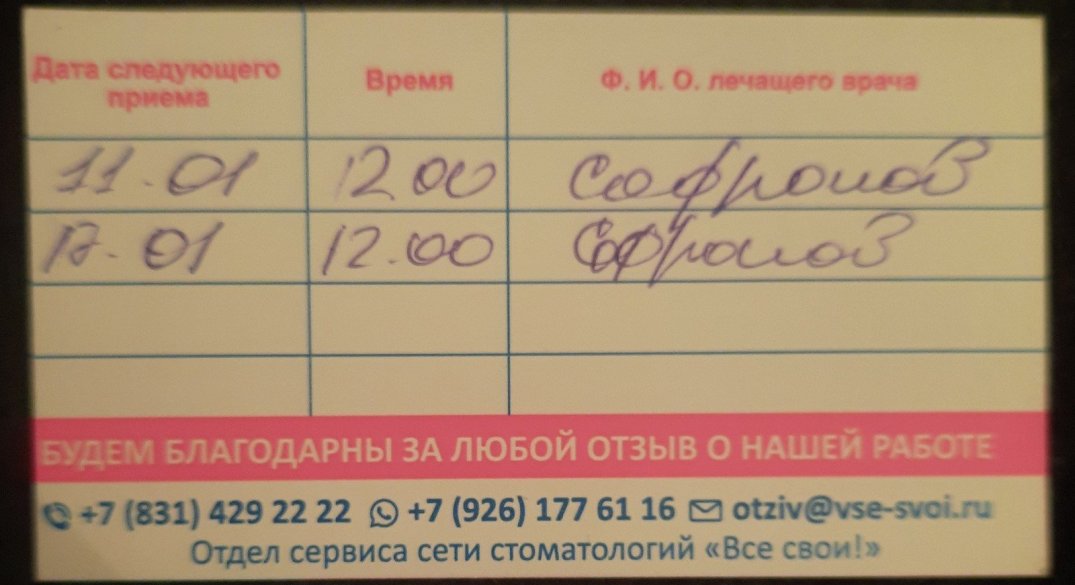 Дата следующего приема Время Ф. И. О. лечащего врача
11.01 12.00 Софронов
17.01 12.00 Софронов
БУДЕМ БЛАГОДАРНЫ ЗА ЛЮБОЙ ОТЗЫВ О НАШЕЙ РАБОТЕ
+7 (831) 429 22 22 +7 (926) 177 61 16 otziv@vse-svoi.ru
Отдел сервиса сети стоматологий «Все свои!»